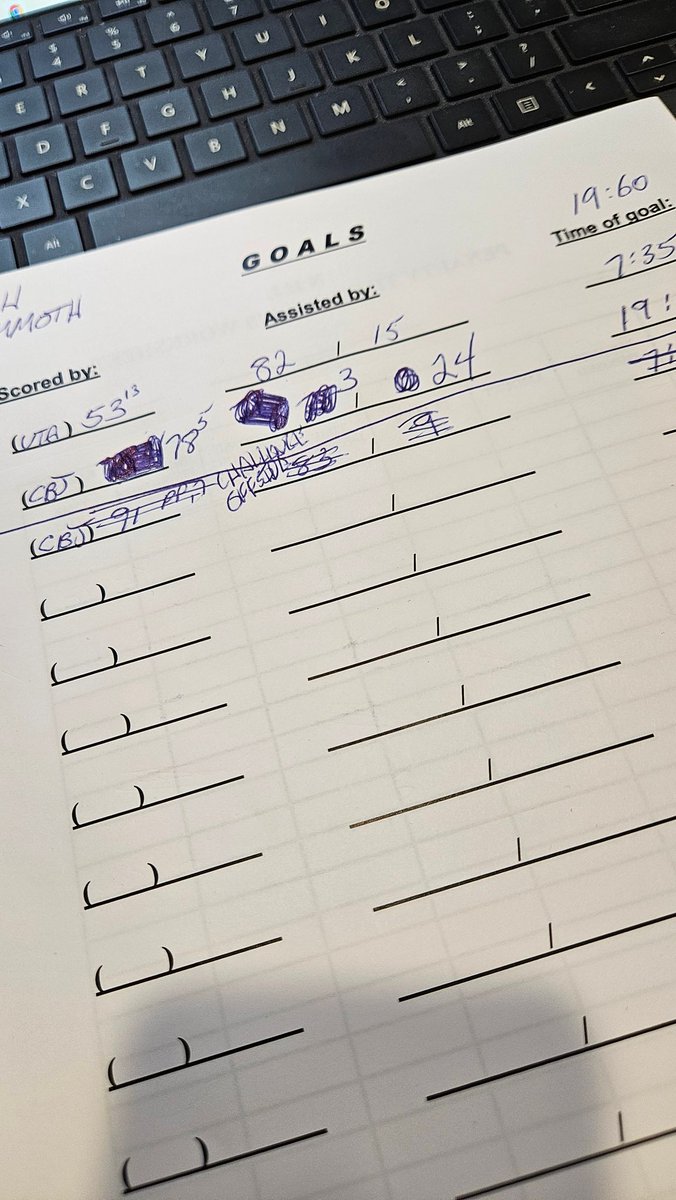 $ 4 % 5 ^ 6 & 7
E R T Y U I O
D F G H J K L : ; " '
X C V B N M < , > . ? /
Alt Alt
GOALS
19:60
Scored by: Assisted by: Time of goal:
MMOTH
(UTA) 53 13 82 15 7:35
(CBJ) 78 5 3 24 19:
(CBJ) 91 PP, 83 9
CHALLENGE
OFFSIDE
( )
( )
( )
( )
( )
( )
( )
( )